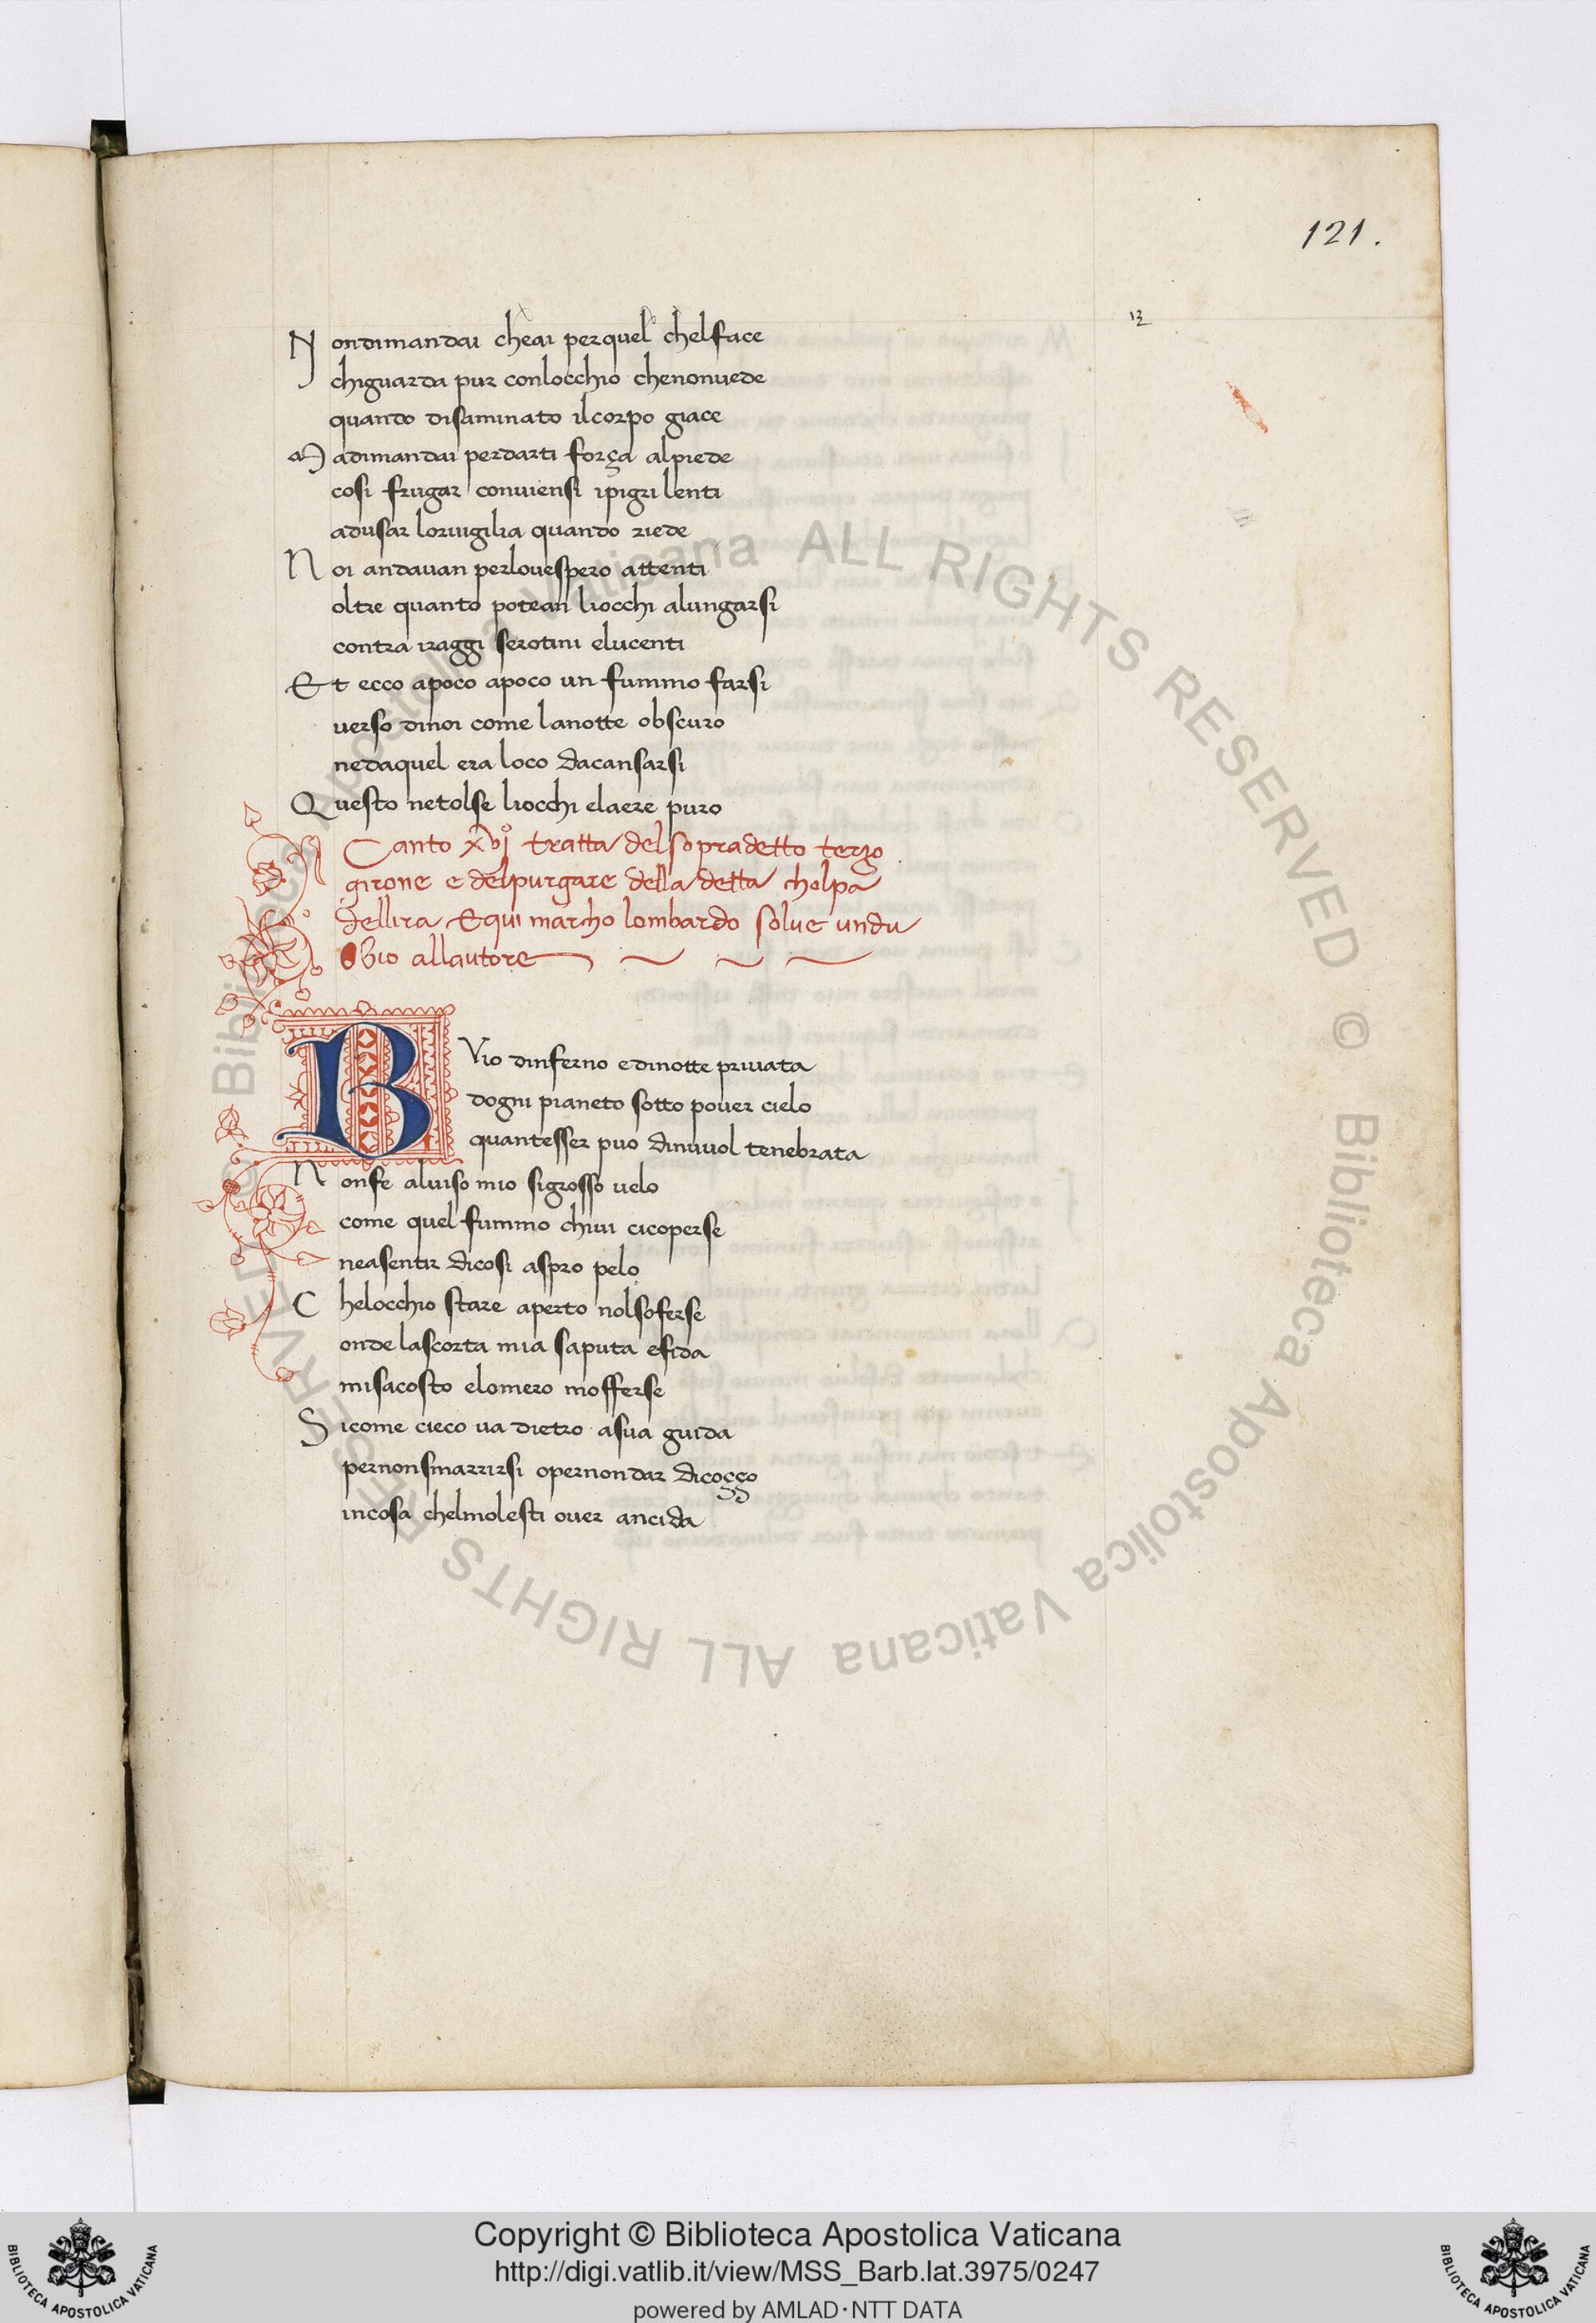 121.
12
Nondimandai cheai perquel chelface
chiguarda pur conlocchio chenonuede
quando disaminato ilcorpo giace
Madimandai perdarti força alpiede
cosi frugar conuiensi ipigri lenti
adusar loruigilia quando riede
Noi andauan perlouespero attenti
oltre quanto potean liocchi alungarsi
contra iraggi serotini elucenti
Et ecco apoco apoco un fummo farsi
uerso dinoi come lanotte obscuro
nedaquel era loco dacansarsi
Questo netolse liocchi elaere puro
Canto xvjº tratta delsopradetto terzo
girone e delpurgare della detta cholpa
dellira Equi marcho lombardo solue undu
bio allautore
BVio dinferno edinotte priuata
dogni pianeto sotto pouer cielo
quantesser puo dinuuol tenebrata
Nonfe aluiso mio sigrosso uelo
come quel fummo chiui cicoperse
neasentir dicosi aspro pelo
Chelocchio stare aperto nolsoferse
onde lascorta mia saputa efida
misacosto elomero mofferse
Sicome cieco ua dietro asua guida
pernonsmarrirsi opernondar dicoçço
incosa chelmolesti ouer ancida
© Biblioteca Apostolica Vaticana ALL RIGHTS RESERVED © Biblioteca Apostolica Vaticana ALL RIGHTS RESERVED
Copyright © Biblioteca Apostolica Vaticana
http://digi.vatlib.it/view/MSS_Barb.lat.3975/0247
powered by AMLAD·NTT DATA
BIBLIOTECA APOSTOLICA VATICANA
BIBLIOTECA APOSTOLICA VATICANA